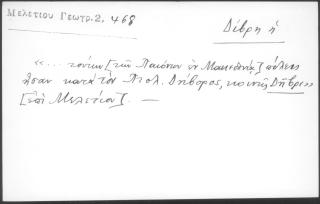 Μελετίου Γεωγρ. 2, 468
Δίβρη ἡ
«... τούτων [τῶν Παιόνων ἐν Μακεδονίᾳ] πόλεις
ἦσαν κατὰ τὸν Πτολ. Δήβορος, κοινῶς Δήβρη»
[ἐπὶ Μελετίου]. —